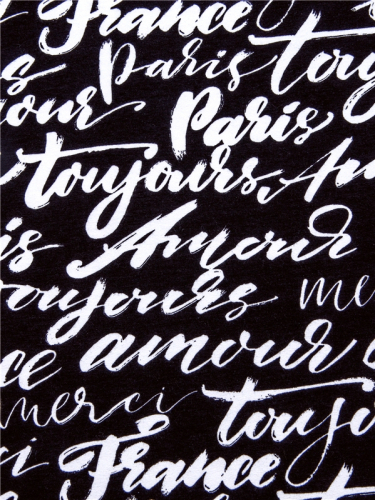 France
is Paris touj
our Paris
toujours, Am
is Amour
oujours me
ce amour
merci touj
ci France